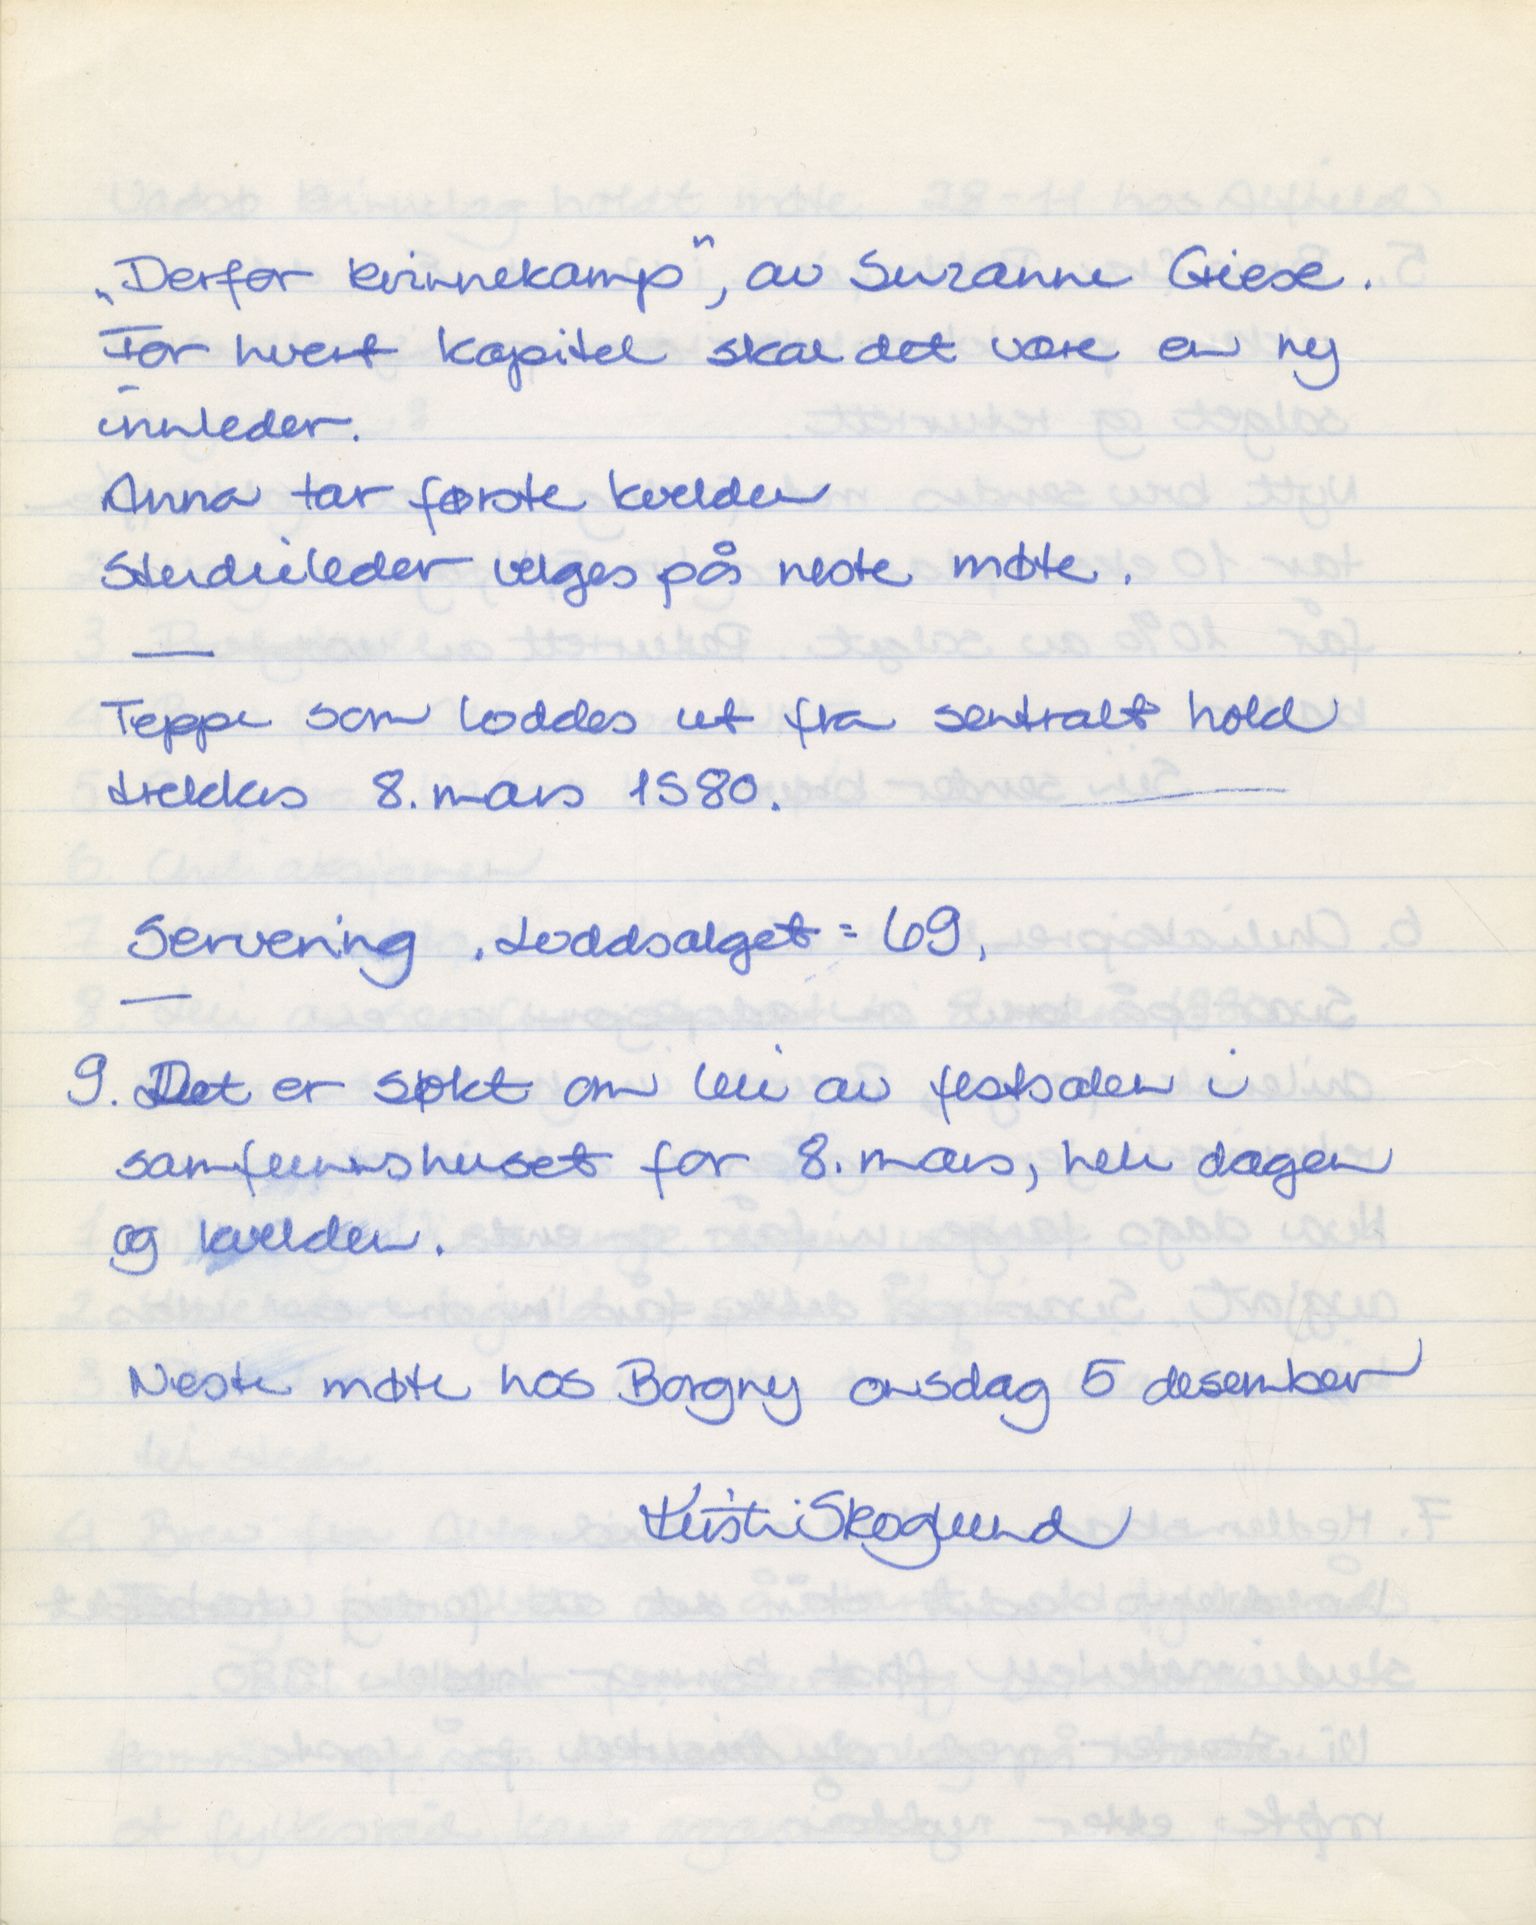 „Derfor kvinnekamp", av Suzanne Giese.
For hvert kapitel skal det være en ny
innleder.
Anna tar første kvelden
Studieleder velges på neste møte.
—
Teppe som loddes ut fra sentralt hold
trekkes 8. mars 1980.
Servering. Loddsalget = 69,
—
9. Det er søkt om leie av festsalen i
samfunnshuset for 8. mars, hele dagen
og kvelden.
Neste møte hos Borgny onsdag 5 desember
Kristi Skoglund